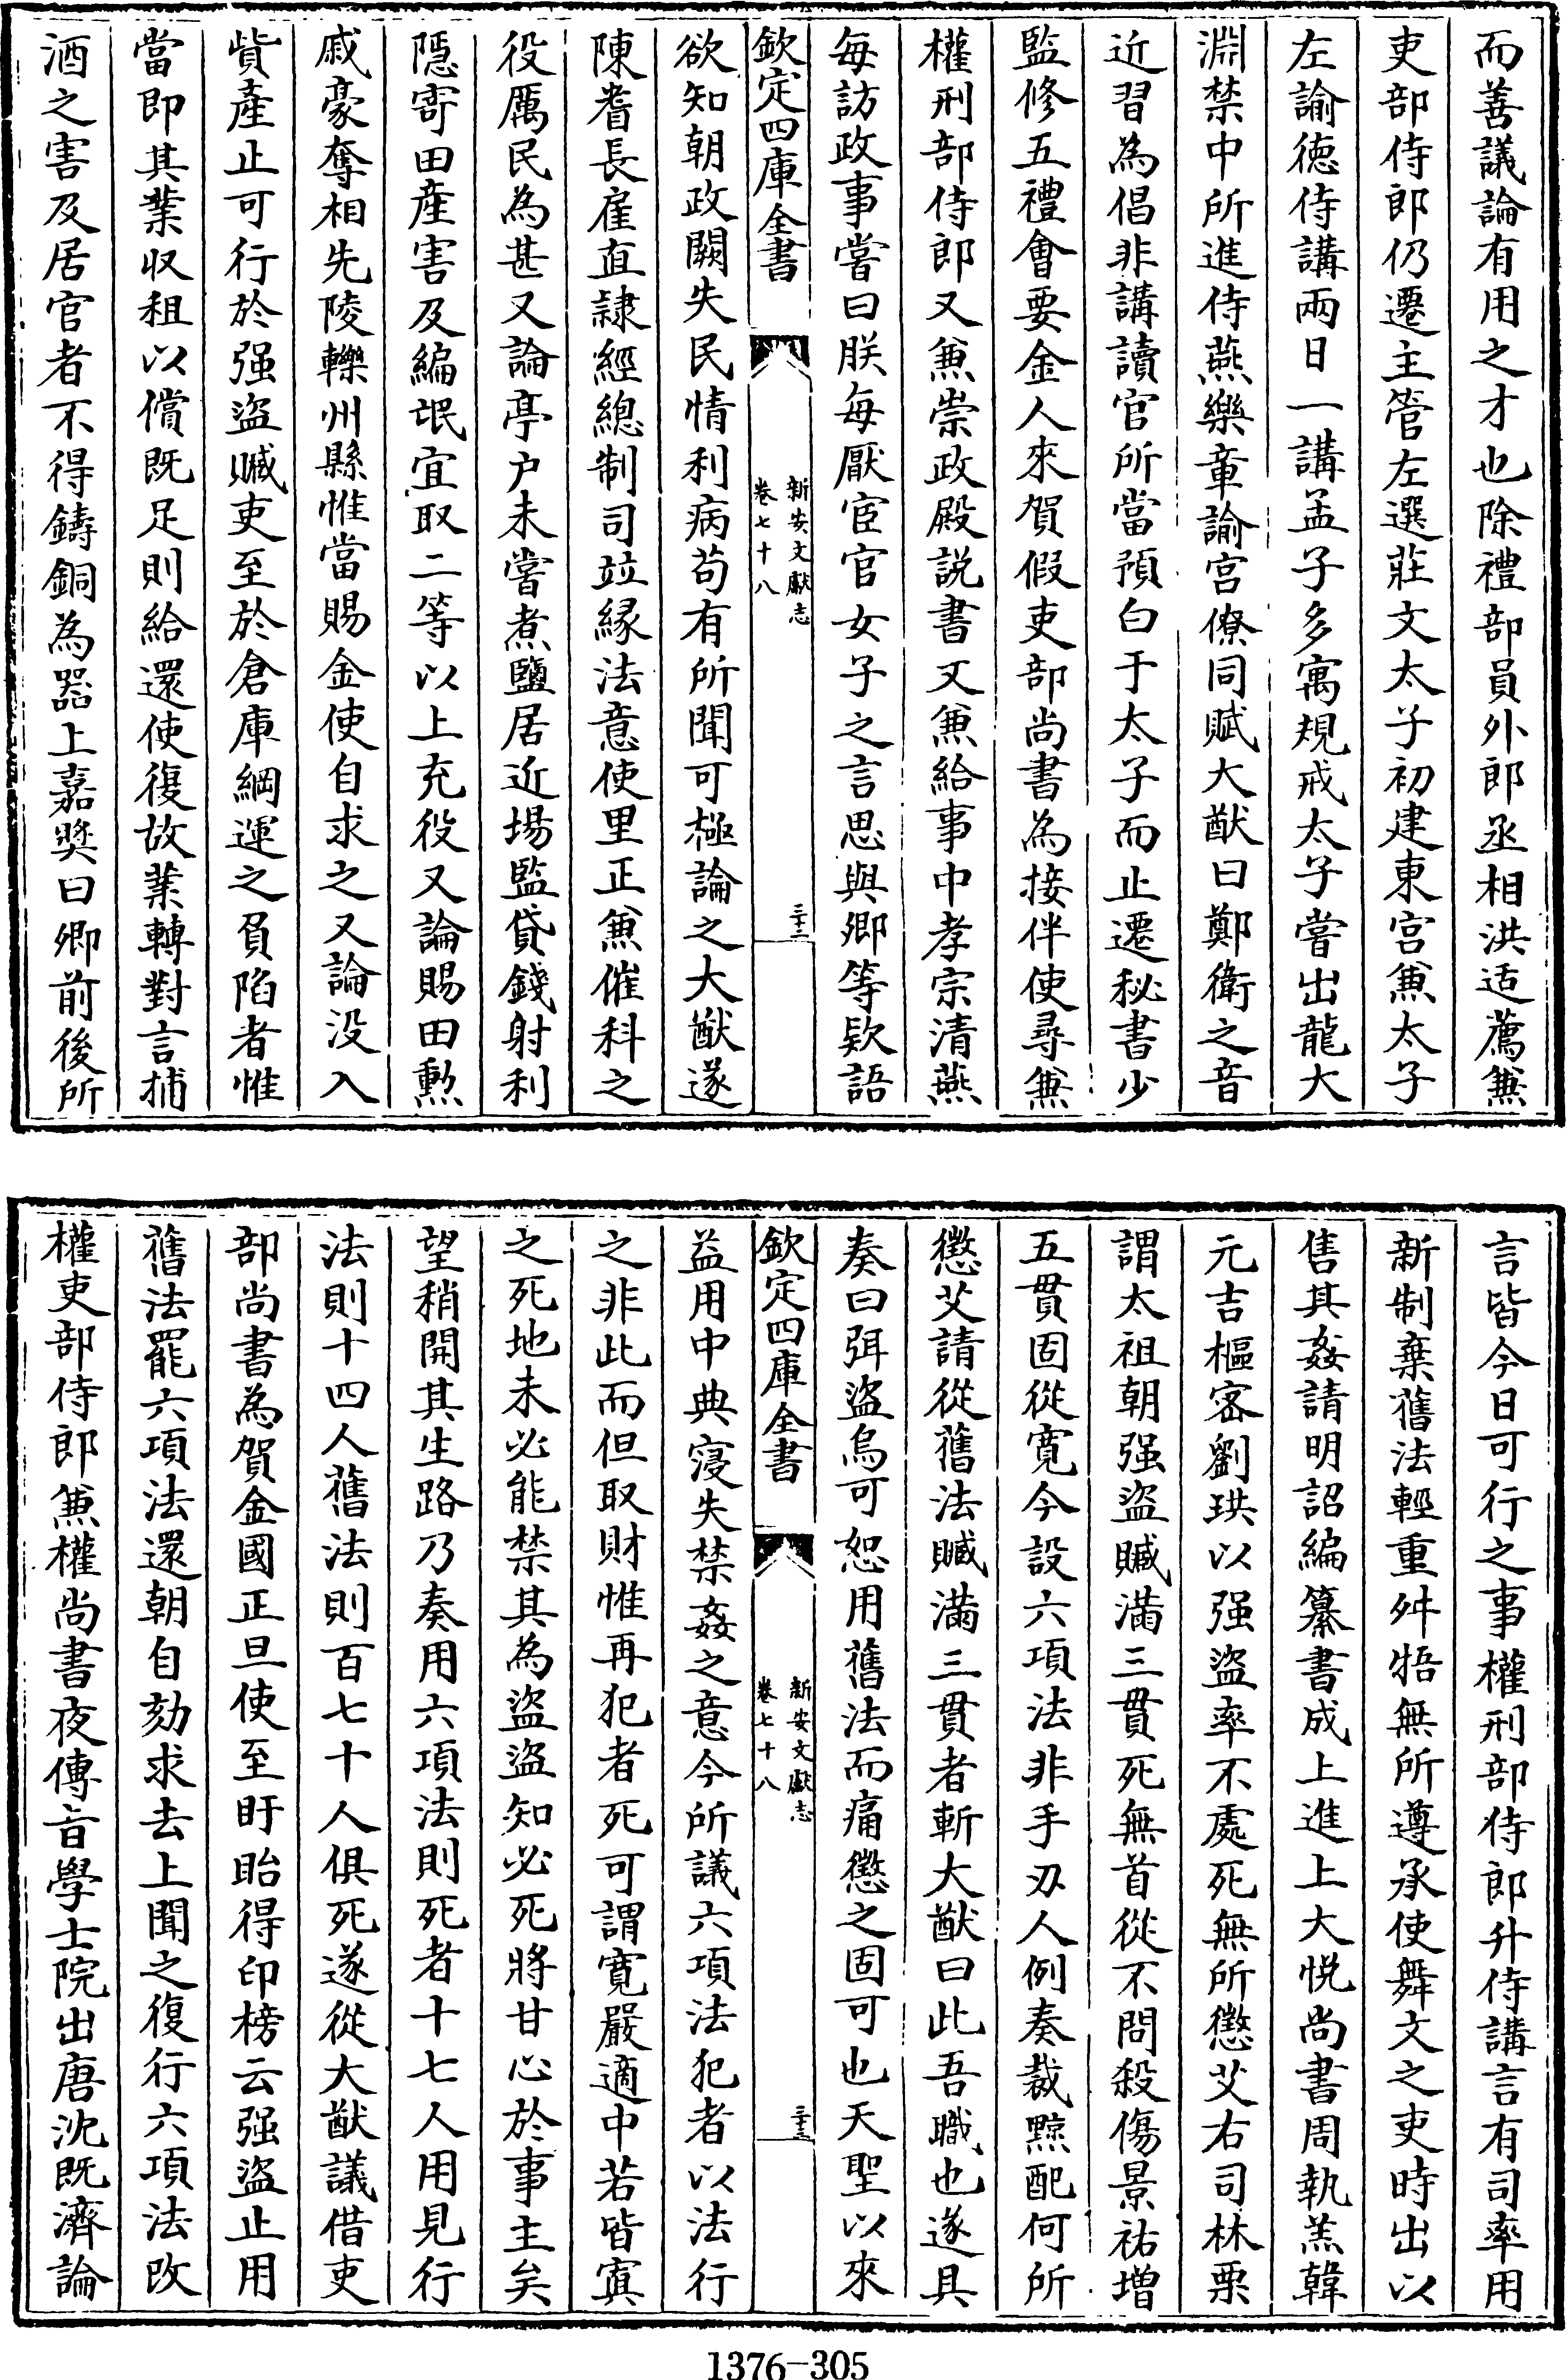 而善議論有用之才也除禮部員外郎丞相洪适薦兼
吏部侍郎仍遷主管左選莊文太子初建東宫兼太子
左諭徳侍講兩日一講孟子多寓規戒太子嘗出龍大
淵禁中所進侍燕樂章諭宫僚同賦大猷曰鄭衛之音
近習為倡非講讀官所當預白于太子而止遷秘書少
監修五禮會要金人來賀假吏部尚書為接伴使尋兼
權刑部侍郎又兼崇政殿説書又兼給事中孝宗清燕
每訪政事嘗曰朕每厭宦官女子之言思與卿等欵語
欽定四庫全書
新安文獻志
卷七十八
三十二
欲知朝政闕失民情利病茍有所聞可極論之大猷遂
陳耆長雇直隷經總制司竝縁法意使里正兼催科之
役厲民為甚又論亭户未嘗煮鹽居近場監貸錢射利
隱寄田産害及編氓宜取二等以上充役又論賜田勲
戚豪奪相先陵轢州縣惟當賜金使自求之又論没入
貲產止可行於强盜贓吏至於倉庫綱運之負陷者惟
當即其業收租以償既足則給還使復故業轉對言捕
酒之害及居官者不得鑄銅為器上嘉奬曰卿前後所
言皆今日可行之事權刑部侍郎升侍講言有司率用
新制棄舊法輕重舛牾無所遵承使舞文之吏時出以
售其姦請明詔編纂書成上進上大悦尚書周執羔韓
元吉樞宻劉珙以强盜率不處死無所懲艾右司林栗
謂太祖朝强盜贓滿三貫死無首從不問殺傷景祐增
五貫固從寛今設六項法非手刃人例奏裁黥配何所
懲艾請從舊法贓滿三貫者斬大猷曰此吾職也遂具
奏曰弭盜烏可恕用舊法而痛懲之固可也天聖以來
欽定四庫全書
新安文獻志
卷七十八
三十三
益用中典寖失禁姦之意今所議六項法犯者以法行
之非此而但取財惟再犯者死可謂寛嚴適中若皆寘
之死地未必能禁其為盜盜知必死將甘心於事主矣
望稍開其生路乃奏用六項法則死者十七人用見行
法則十四人舊法則百七十人俱死遂從大猷議借吏
部尚書為賀金國正旦使至盱眙得印榜云强盜止用
舊法罷六項法還朝自劾求去上聞之復行六項法改
權吏部侍郎兼權尚書夜傳旨學士院出唐沈既濟論
1376-305